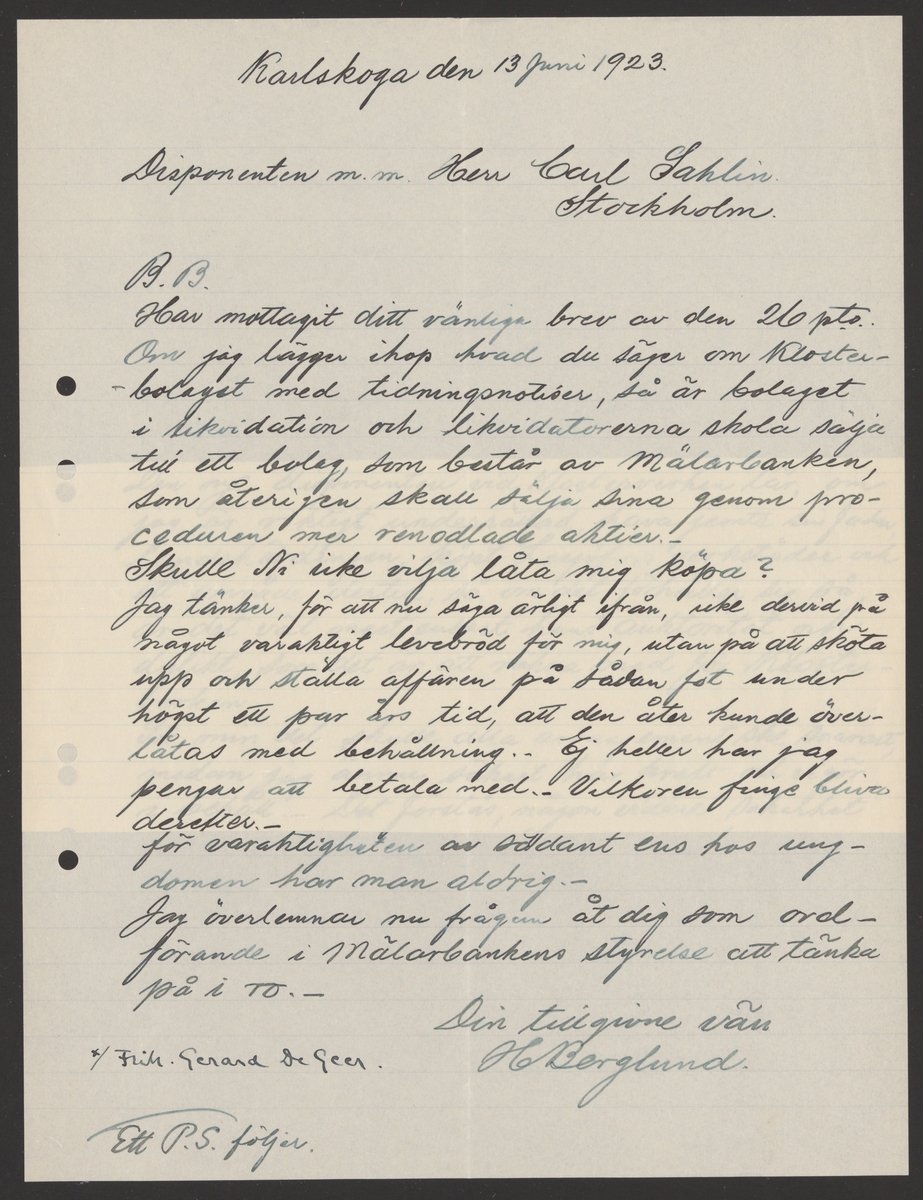 Karlskoga den 13 Juni 1923.
Disponenten m.m. Herr Carl Sahlin.
Stockholm.
B. B.
Har mottagit ditt vänliga brev av den 26 pto.
Om jag lägger ihop hvad du säger om Kloster-
bolaget med tidningsnotiser, så är bolaget
i likvidation och likvidatorerna skola sälja
till ett bolag, som består av Mälarbanken,
som återigen skall sälja sina genom pro-
ceduren mer renodlade aktier.-
Skulle Ni icke vilja låta mig köpa?
Jag tänker, för att nu säga ärligt ifrån, icke dervid på
något varaktigt levebröd för mig, utan på att sköta
upp och ställa affären på sådan fot under
högst ett par års tid, att den åter kunde över-
låtas med behållning.- Ej heller har jag
pengar att betala med.- Vilkoren finge bliva
derefter.-
för varaktigheten av sådant ens hos ung-
domen har man aldrig.-
Jag överlemnar nu frågan åt dig som ord-
förande i Mälarbankens styrelse att tänka
på i ro.-
Din tillgivne vän
H Berglund.
x/ Frih. Gerard De Geer.
Ett P.S. följer.